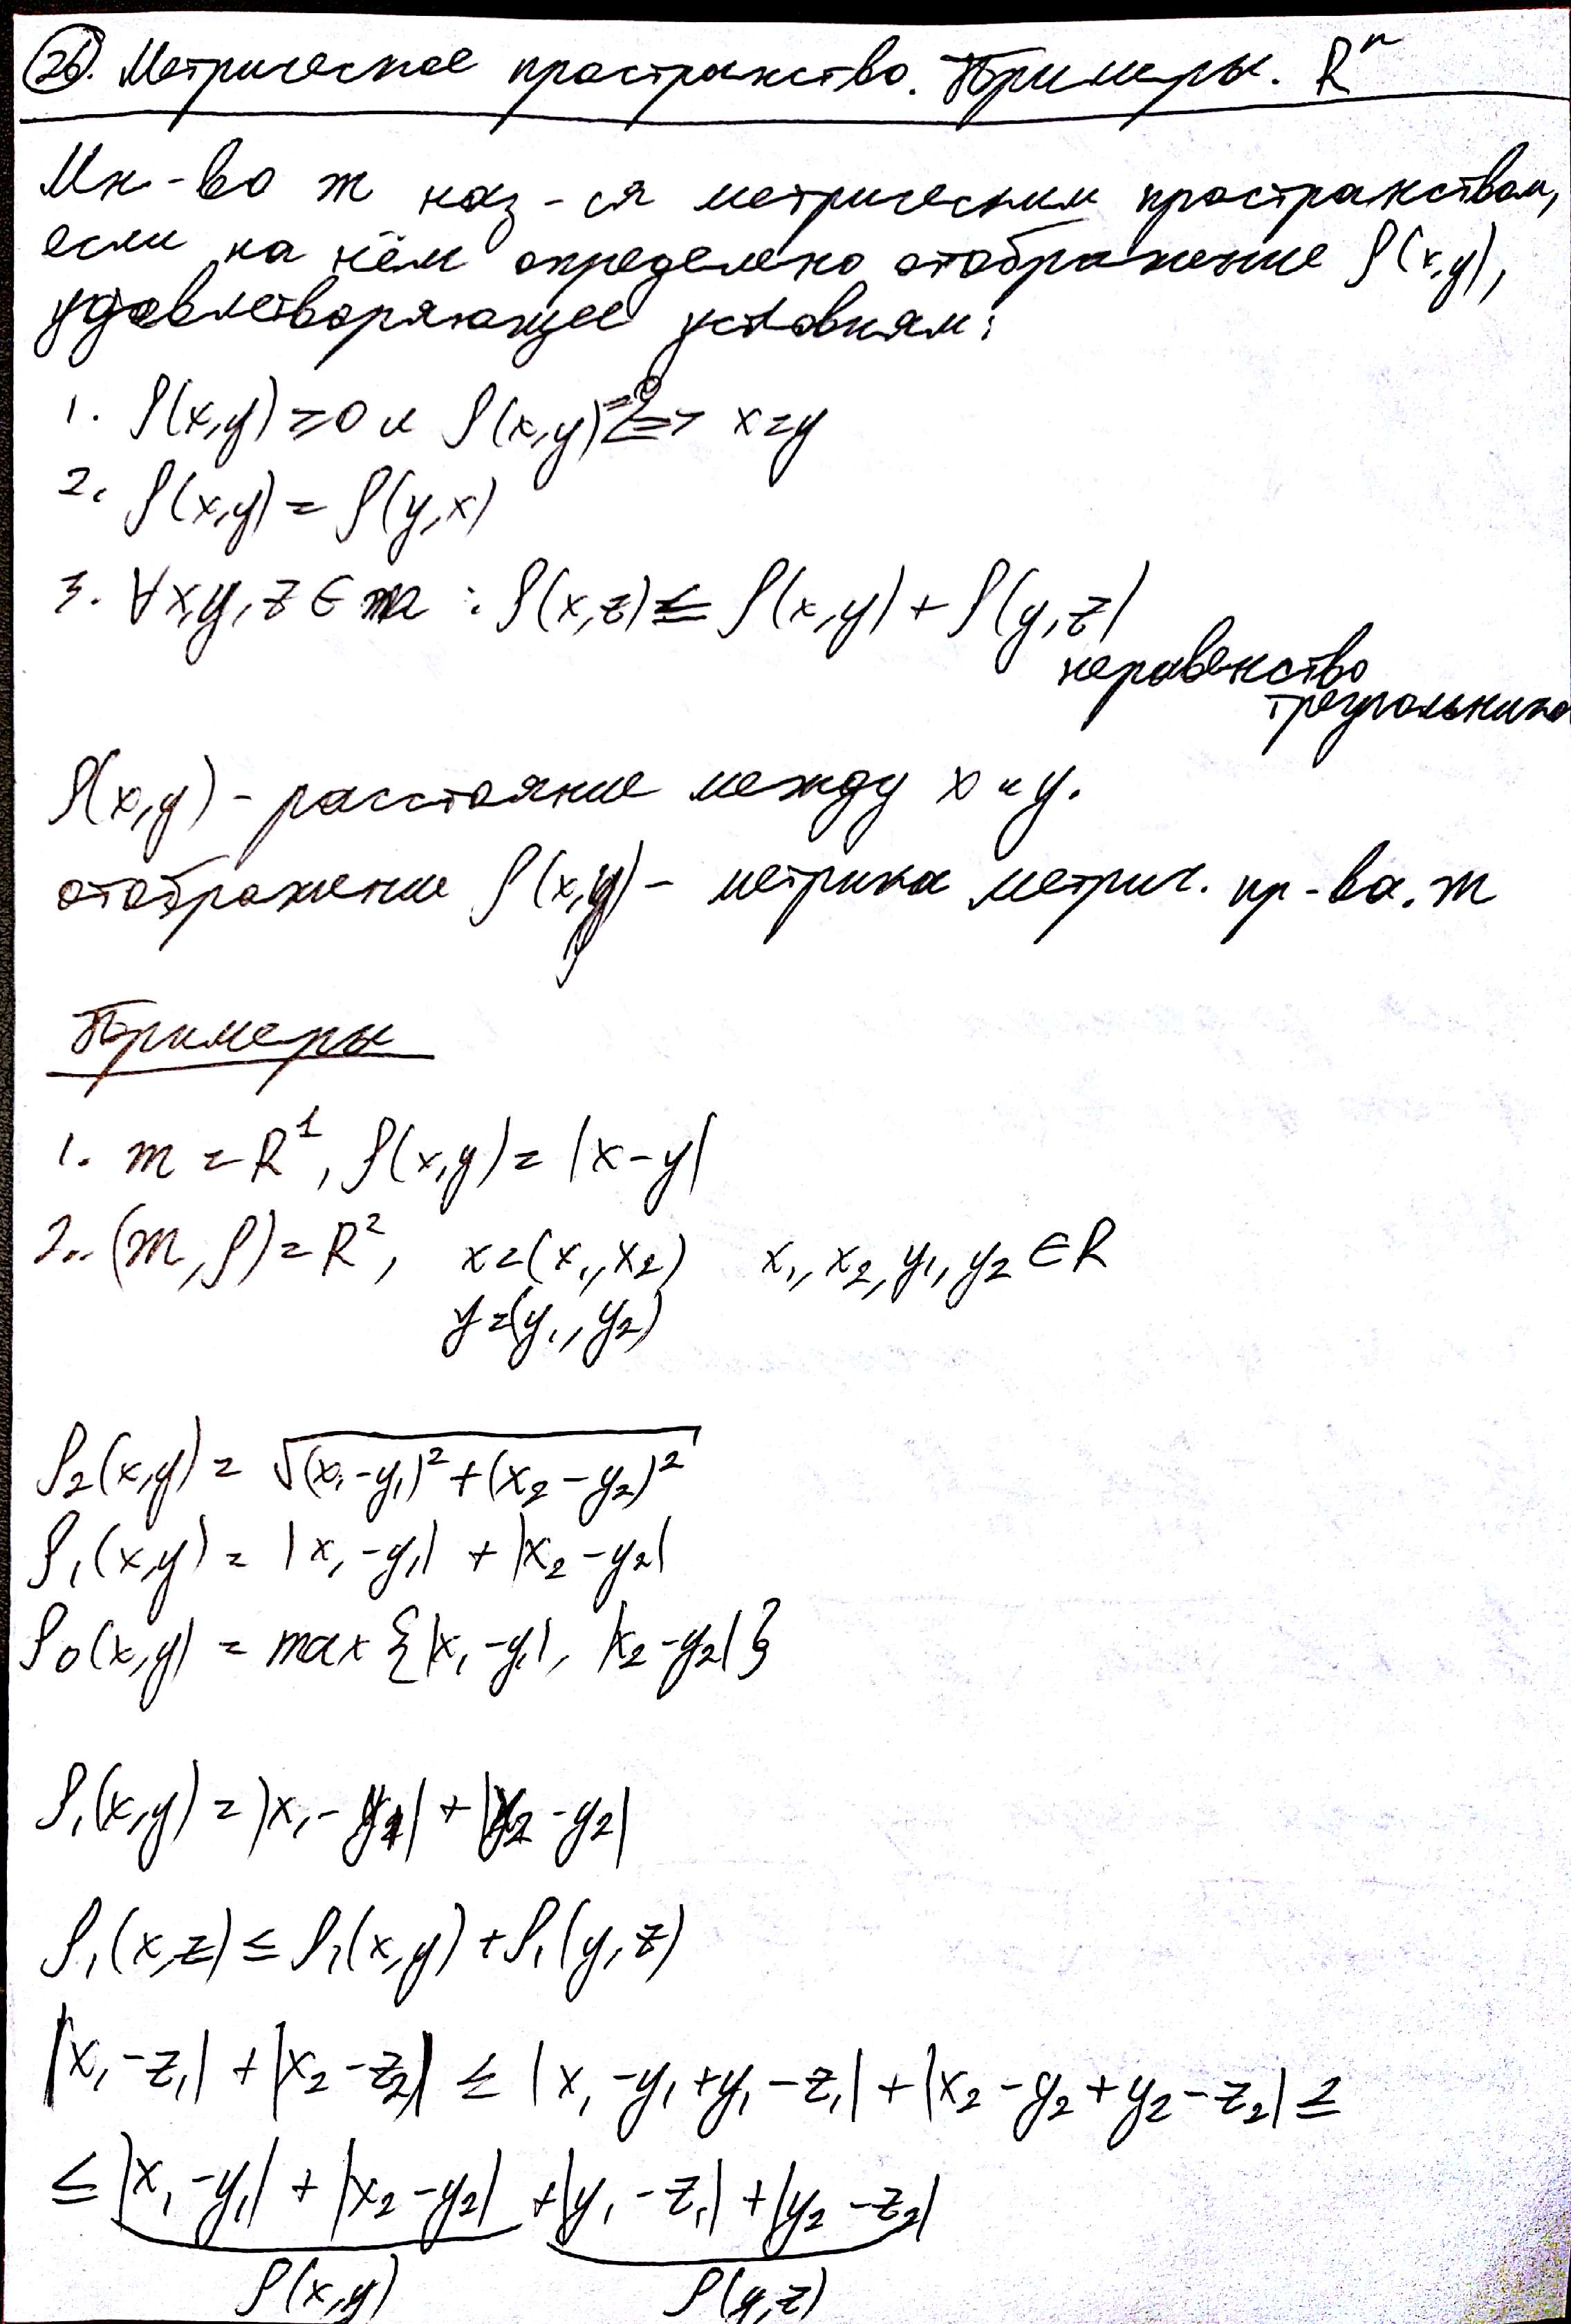 26. Метрическое пространство. Примеры. Rⁿ
Мн-во m наз-ся метрическим пространством,
если на нём определено отображение ρ(x,y),
удовлетворяющее условиям:
1. ρ(x,y) ≥ 0 и ρ(x,y)=0 <=> x=y
2. ρ(x,y) = ρ(y,x)
3. ∀x,y,z ∈ m : ρ(x,z) ≤ ρ(x,y) + ρ(y,z)
неравенство
треугольника
ρ(x,y) - расстояние между x и y.
отображение ρ(x,y) - метрика метрич. пр-ва. m
Примеры
1. m = R¹, ρ(x,y) = |x-y|
2. (m, ρ) = R², x=(x₁,x₂) x₁,x₂,y₁,y₂ ∈ R
y=(y₁,y₂)
ρ₂(x,y) = √((x₁-y₁)²+(x₂-y₂)²)
ρ₁(x,y) = |x₁-y₁| + |x₂-y₂|
ρ₀(x,y) = max{|x₁-y₁|, |x₂-y₂|}
ρ₁(x,y) = |x₁-y₁| + |x₂-y₂|
ρ₁(x,z) ≤ ρ₁(x,y) + ρ₁(y,z)
|x₁-z₁| + |x₂-z₂| ≤ |x₁-y₁+y₁-z₁| + |x₂-y₂+y₂-z₂| ≤
≤ |x₁-y₁| + |x₂-y₂| + |y₁-z₁| + |y₂-z₂|
ρ(x,y) ρ(y,z)